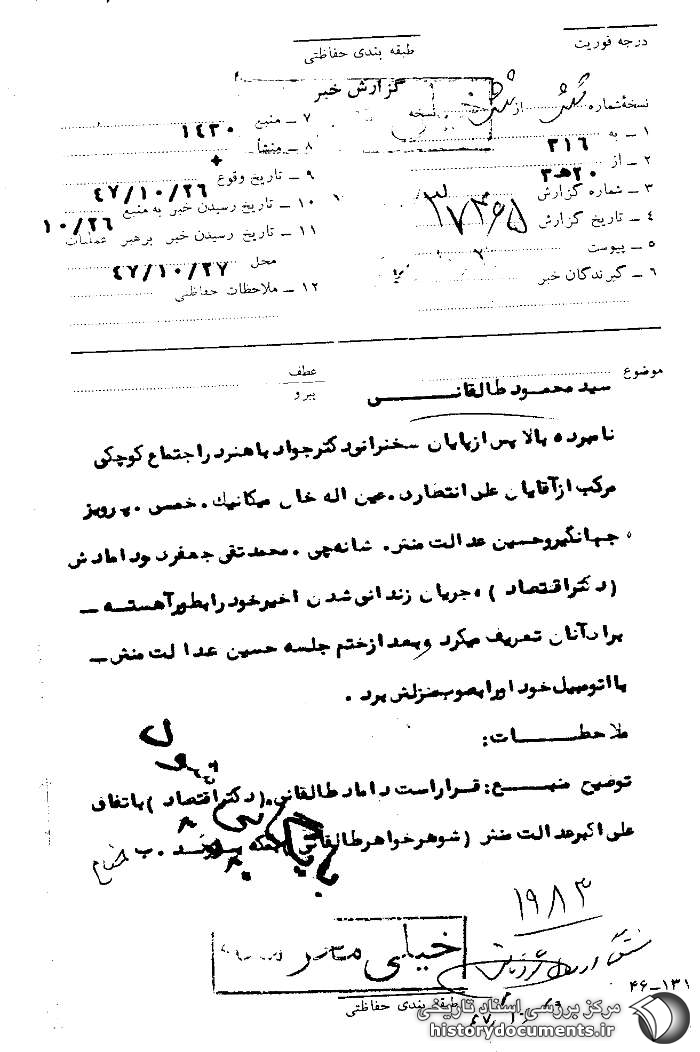 درجه فوریت
طبقه بندی حفاظتی
گزارش خبر
نسخهٔ شماره شش از شش نسخه
۱ ــ به ۳۱۶
۲ ــ از ۲۰ هـ ۳
۳ ــ شماره گزارش
۴ ــ تاریخ گزارش
۵ ــ پیوست
۶ ــ گیرندگان خبر
۷ ــ منبع ۱۴۳۰
۸ ــ منشأ +
۹ ــ تاریخ وقوع ۴۷/۱۰/۲۶
۱۰ ــ تاریخ رسیدن خبر به منبع ۱۰/۲۶
۱۱ ــ تاریخ رسیدن خبر برهبر عملیات
محل ۴۷/۱۰/۲۷
۱۲ ــ ملاحظات حفاظتی
موضوع
عطف
پیرو
سید محمود طالقانــــــی
نامبرده بالا پس از پایان سخنرانی دکتر جواد باهنر در اجتماع کوچکی
مرکب از آقایان علی انتظاری. عین اله خان میکانیک. خمسی. پرویز
جهانگیر و حسین عدالت منش. شانه چی. محمد تقی جعفری و دامادش
(دکتر اقتصاد) جریان زندانی شدن اخیر خود را بطور آهسته ــ
برای آنان تعریف میکرد و بعد از ختم جلسه حسین عدالت منش ــ
با اتومبیل خود او را بصوب منزلش برد.
ملاحظــــات:
توضیح منبــــع: قرار است داماد طالقانی (دکتر اقتصاد) باتفاق
علی اکبر عدالت منش (شوهر خواهر طالقانی) بمکه بــروند. ب
بایگانی
۱۹۸۳
خیلی محرمانه
طبقه بندی حفاظتی
۴۶-۱۳۱
مرکز بررسی اسناد تاریخی
historydocuments.ir